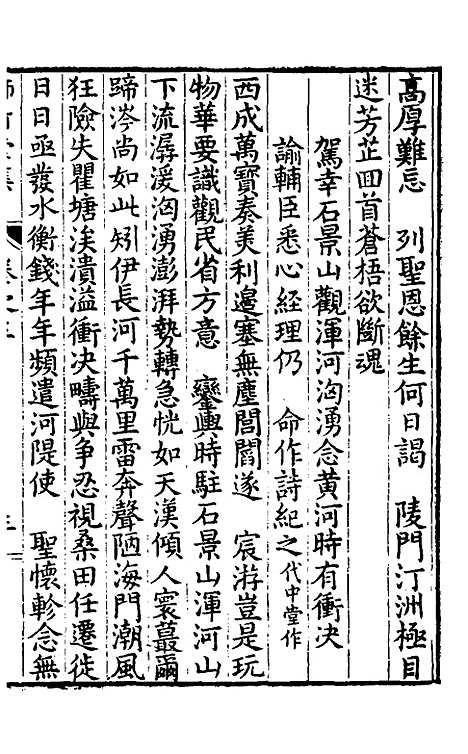 高厚難忘　列聖恩餘生何日謁　陵門汀洲極目
迷芳芷回首蒼梧欲斷魂
駕幸石景山觀渾河洶湧念黃河時有衝決
諭輔臣悉心經理仍　命作詩紀之代中堂作
西成萬寶奏美利邊塞無塵閭閻遂　宸游豈是玩
物華要識觀民省方意　鑾輿時駐石景山渾河山
下流潺湲洶湧澎湃勢轉急恍如天漢傾人寰蕞爾
蹄涔尚如此矧伊長河千萬里雷奔聲陋海門潮風
狂險失瞿塘涘潰溢衝决疇與爭忍視桑田任遷徙
日日亟發水衡錢年年頻遣河隄使　聖懷軫念無